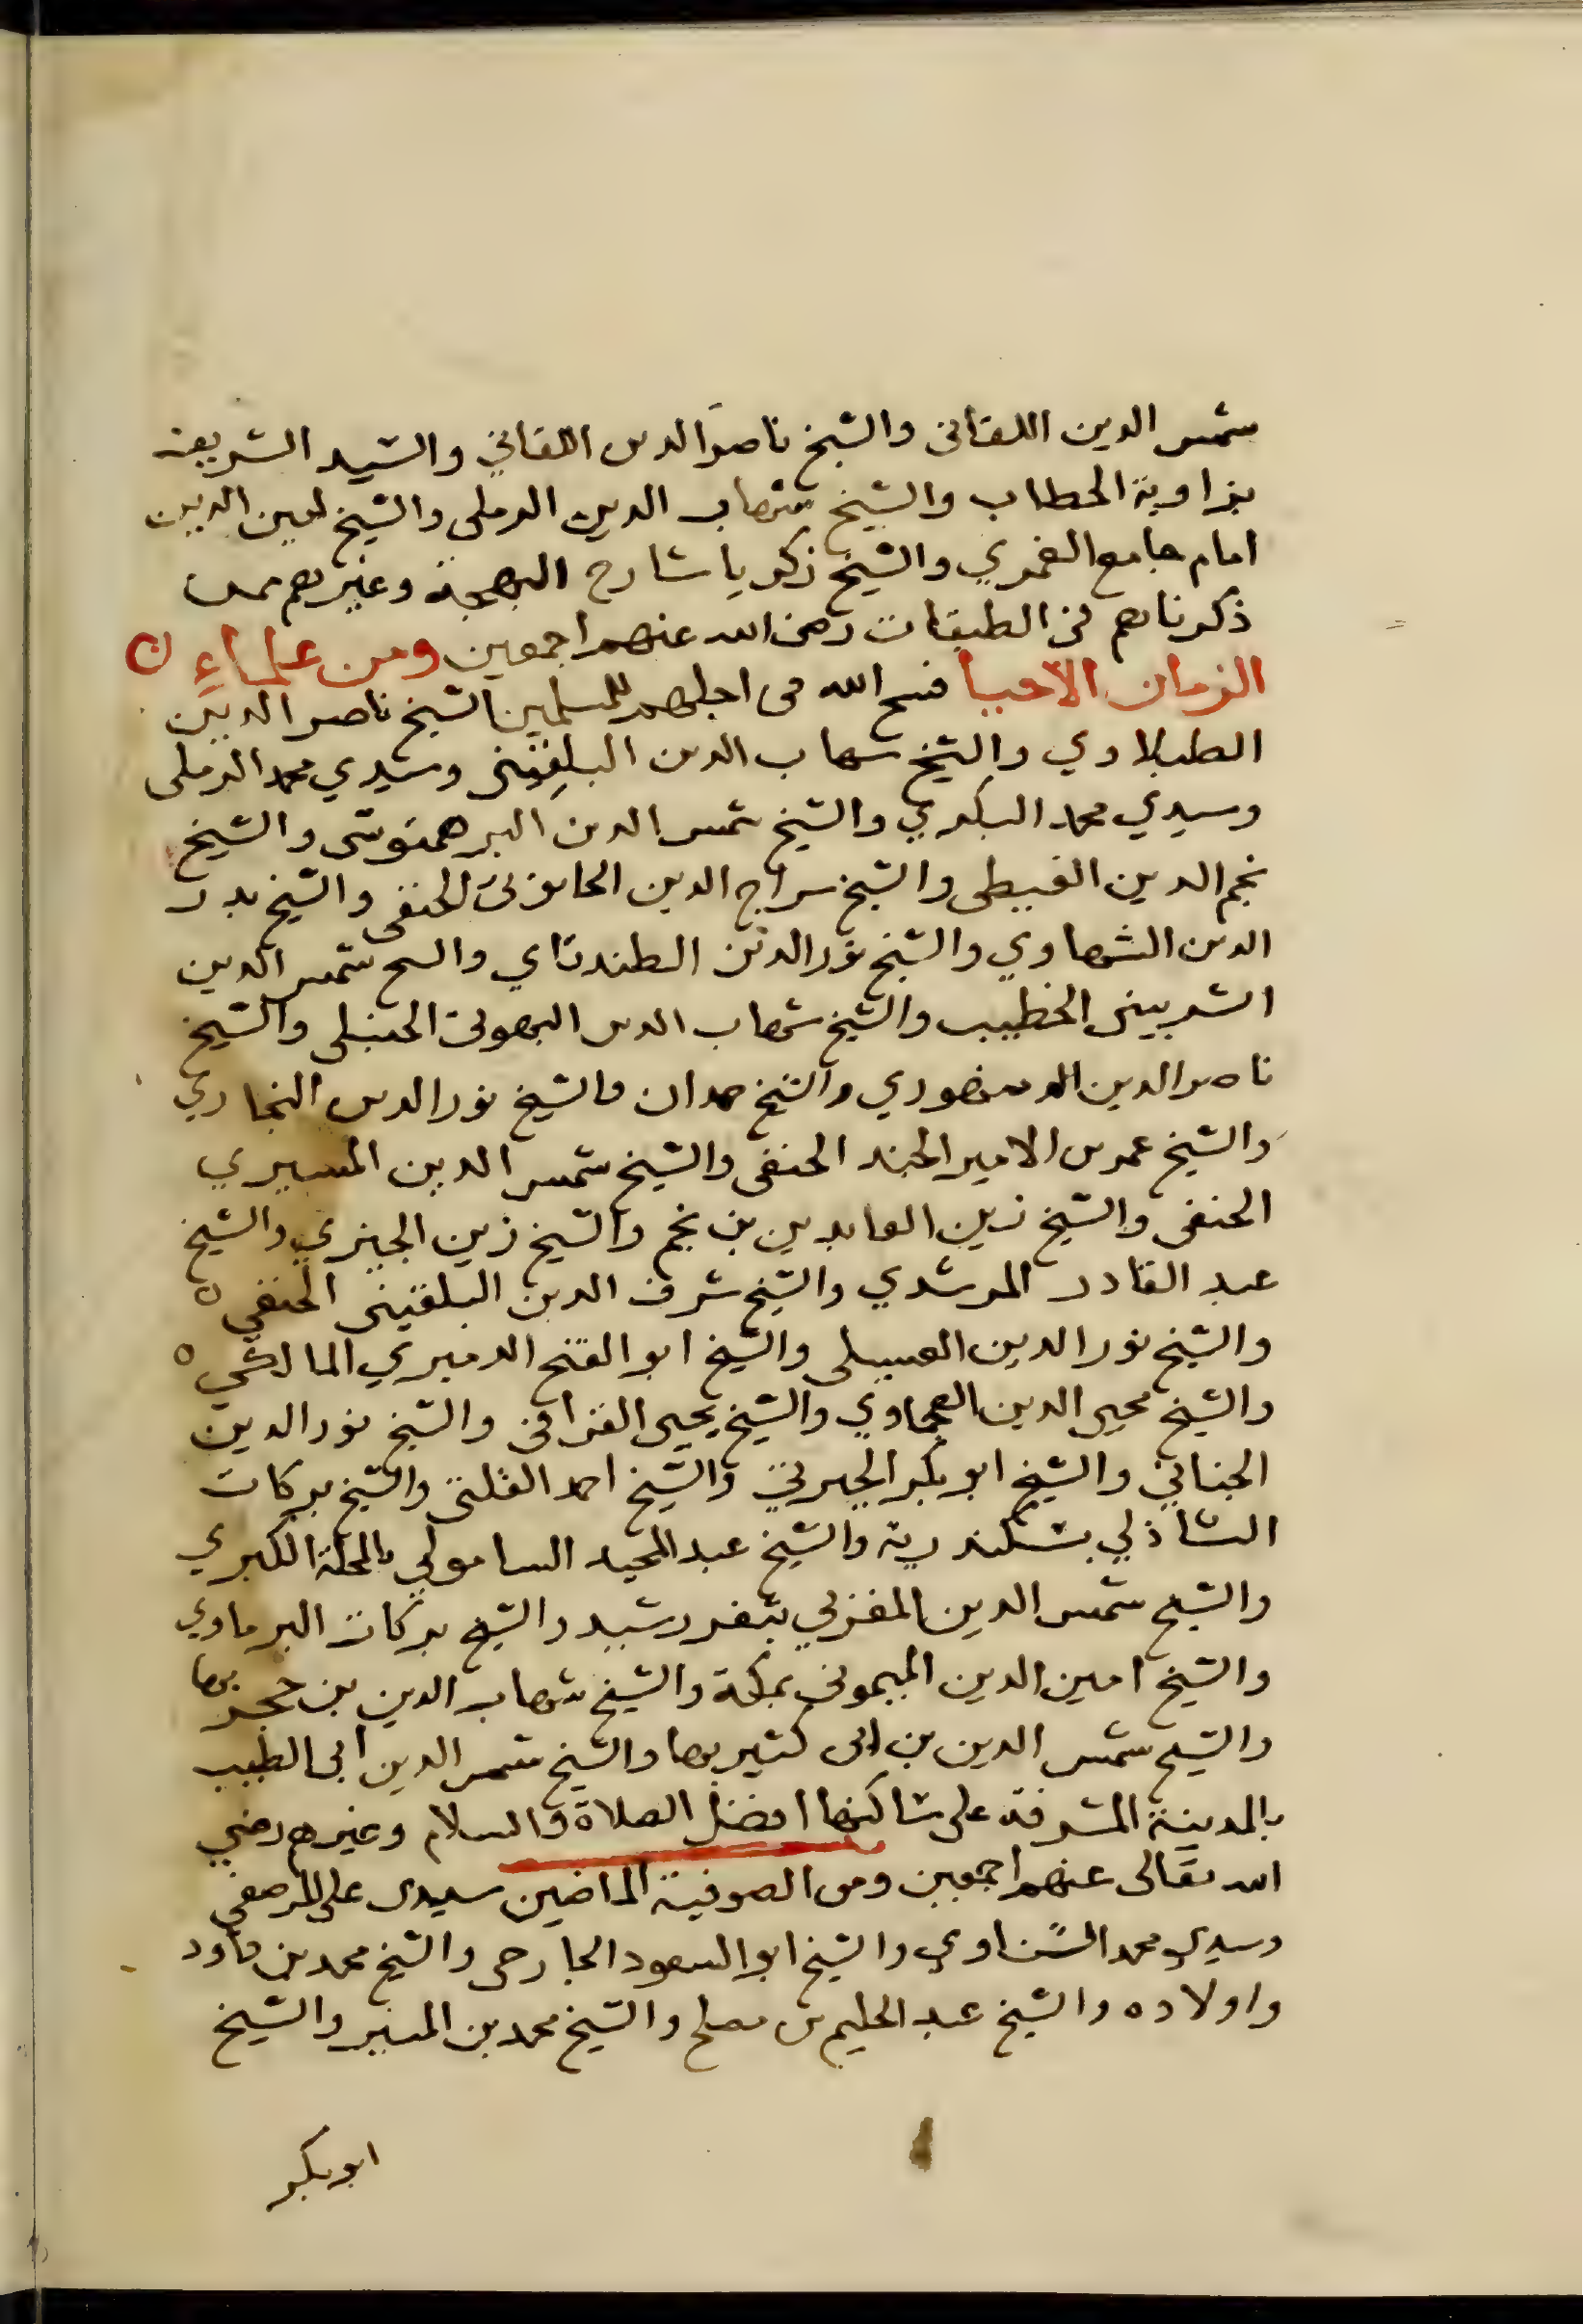 شمس الدين اللقاني والشيخ ناصر الدين اللقاني والسيد الشريف
بزاوية الحطاب والشيخ شهاب الدين الرملي والشيخ امين الدين
امام جامع الغمري والشيخ زكريا شارح البهجة وغيرهم ممن
ذكرناهم في الطبقات رضى الله عنهم اجمعين ومن علماء
الزمان الاحيا فسح الله فى اجلهم للمسلمين الشيخ ناصر الدين
الطبلاوي والشيخ شهاب الدين البلقينى وسيدي محمد الرملى
وسيدي محمد البكري والشيخ شمس الدين البرهمتوشى والشيخ
نجم الدين الغيطى والشيخ سراج الدين الحانوتى الحنفى والشيخ بدر
الدين الشهاوي والشيخ نور الدين الطندتاي والشيخ شمس الدين
الشربينى الخطيب والشيخ شهاب الدين البهوتى الحنبلى والشيخ
ناصر الدين والشيخ حمدان والشيخ نور الدين
والشيخ عمر بن الامير الجند الحنفى والشيخ شمس الدين
الحنفى والشيخ زين العابدين بن نجم والشيخ زين الجيزي والشيخ
عبد القادر المرشدي والشيخ شرف الدين البلقينى الحنفى
والشيخ نور الدين العسيلى والشيخ ابو الفتح الدميري المالكي
والشيخ محيي الدين والشيخ يحيى القرافى والشيخ نور الدين
والشيخ ابو بكر والشيخ احمد والشيخ بركات
الشاذلي بسكندرية والشيخ عبد المجيد السامولي بالمحلة الكبري
والشيخ شمس الدين المغربي بثغر رشيد والشيخ بركات البرماوي
والشيخ امين الدين الميمونى بمكة والشيخ شهاب الدين بن حجر بها
والشيخ شمس الدين بن ابى كثير بها والشيخ شمس الدين ابى الطيب
بالمدينة المشرفة على ساكنها افضل الصلاة والسلام وغيرهم رضي
الله تعالى عنهم اجمعين ومن الصوفية الماضين سيدى على المرصفى
وسيدي محمد الشناوي والشيخ ابو السعود الجارحى والشيخ محمد بن داود
واولاده والشيخ عبد الحليم بن مصلح والشيخ محمد بن المنير والشيخ
ابو بكر